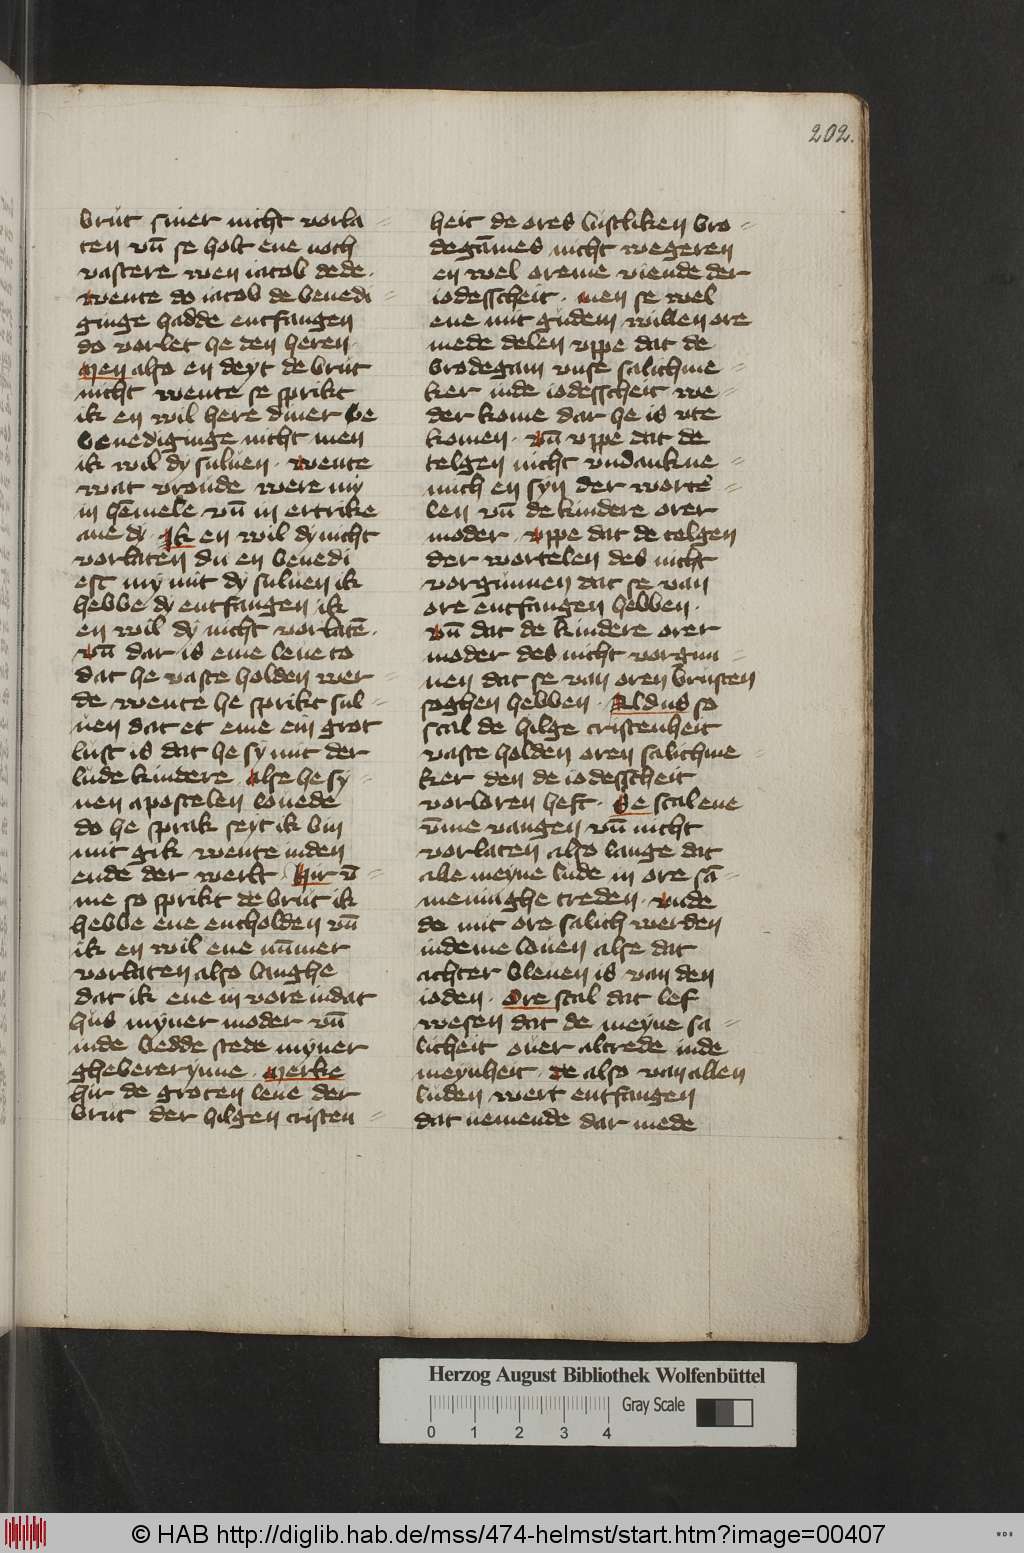 202.
brut siner nicht vorla=
ten vn̄ se holt ene noch
vastere wen iacob dede.
wente do iacob de benedi=
ginge hadde entfangen
do vorlet he den heren.
Men also en deyt de brut
nicht wente se sprikt
ik en wil here diner be
benediginge nicht men
ik wil dy suluen. wente
wat vroude were my
in hēmele vn̄ in ertrike
ane dy. Ik en wil dy nicht
vorlaten du en benedi
est my mit dy suluen ik
hebbe dy entfangen ik
en wil dy nicht vorlatē.
vn̄ dar is eme leue to
dat he vaste holden wer=
de wente he sprikt sul=
uen dat et eme ein grot
lust is dat he sy mit der
lude kindere. alse he sy=
nen apostelen louede
do he sprak seyt ik bin
mit gik wente in den
ende der werlt. Hir v̄=
me so sprikt de brut ik
hebbe ene entholden vn̄
ik en wil ene nūmer
vorlaten also langhe
dat ik ene in vore in dat
hus myner moder vn̄
in de bedde stede myner
ghebererynne. Merke
hir de groten leue der
brut der hilgen cristen=
heit de ores lustliken bro=
degāmes nicht wegeren
en wel oreme viende der
iodesscheit. men se wel
ene mit gudem willen ore
mede delen vppe dat de
brodegam vnse salichme=
ker in de iodesscheit we=
der kome dar he is vte
komen. vn̄ vppe dat de
telgen nicht vndankne=
mich en syn der worte=
len vn̄ de kindere orer
moder. vppe dat de telgen
der wortelen des nicht
vorgunnen dat se van
ore entfangen hebben.
vn̄ dat de kindere orer
moder des nicht vorgun=
nen dat se van oren brusten
soghen hebben. Aldus so
scal de hilge cristenheit
vaste holden oren salichme=
ker den de iodesscheit
vorloren heft. Se scal ene
v̄me vangen vn̄ nicht
vorlaten also lange dat
alle meyne lude in ore sā=
meninghe treden. vnde
de mit ore salich werden
in deme louen alse dat
achter bleuen is van den
ioden. Ore scal dat lef
wesen dat de meyne sa=
licheit ouer altrede in de
meynheit. de also van allen
luden wert entfangen
dat nemende dar mede
Herzog August Bibliothek Wolfenbüttel
Gray Scale
0 1 2 3 4
© HAB http://diglib.hab.de/mss/474-helmst/start.htm?image=00407